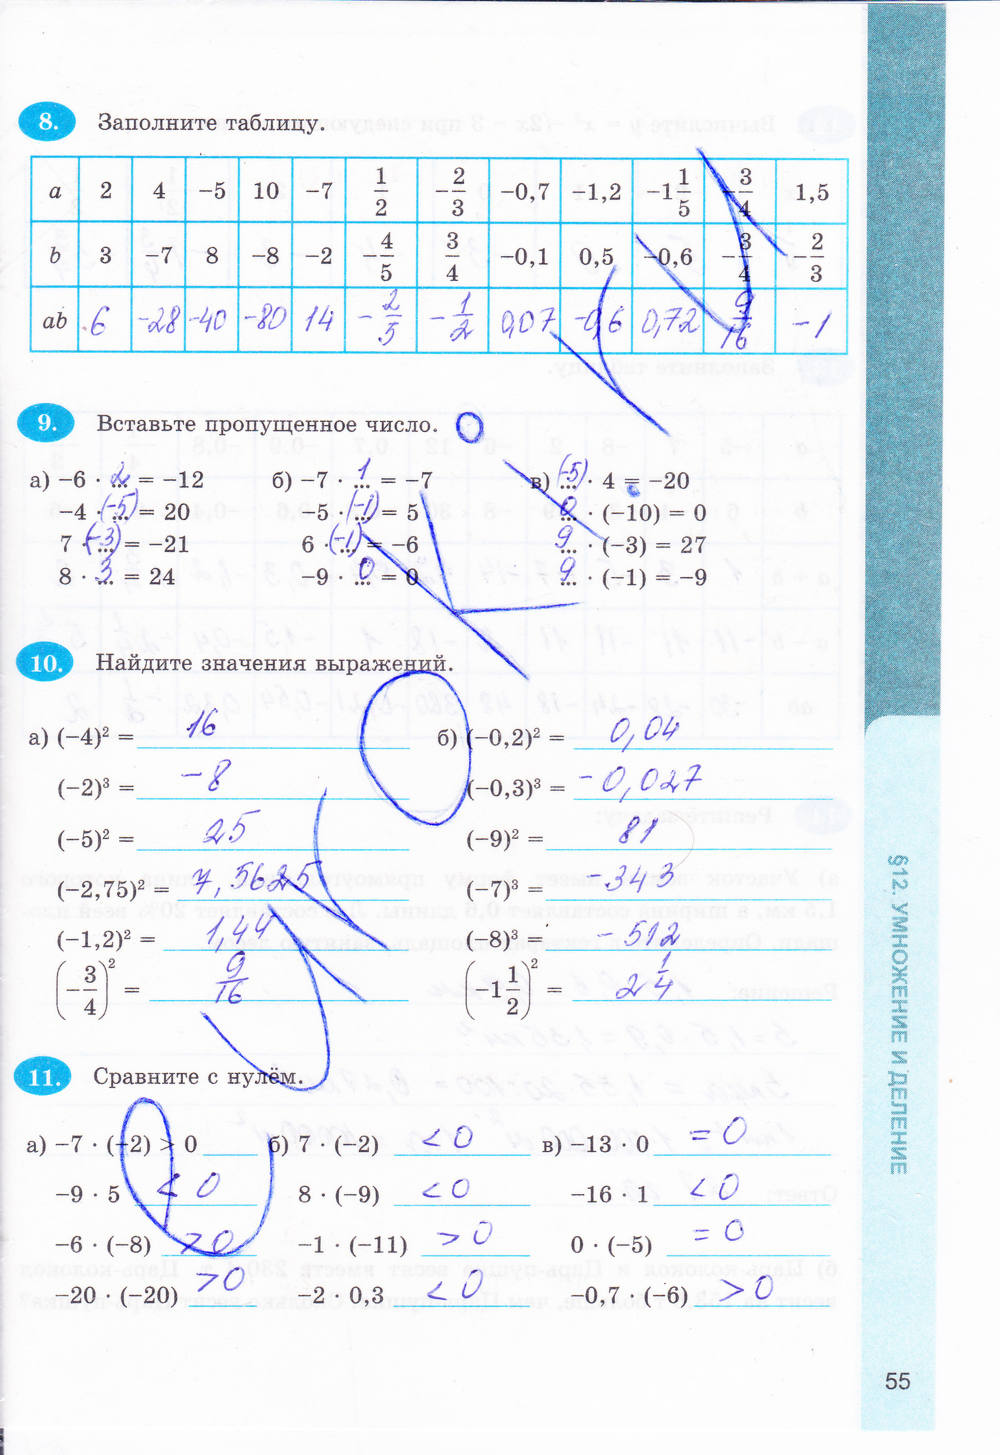 8. Заполните таблицу.
a 2 4 −5 10 −7 1/2 −2/3 −0,7 −1,2 −1 1/5 −3/4 1,5
b 3 −7 8 −8 −2 −4/5 3/4 −0,1 0,5 −0,6 −3/4 −2/3
ab 6 −28 −40 −80 14 −2/5 −1/2 0,07 −0,6 0,72 9/16 −1
9. Вставьте пропущенное число.
а) −6 · 2 = −12 б) −7 · 1 = −7 в) (−5) · 4 = −20
−4 · (−5) = 20 −5 · (−1) = 5 0 · (−10) = 0
7 · (−3) = −21 6 · (−1) = −6 9 · (−3) = 27
8 · 3 = 24 −9 · 0 = 0 9 · (−1) = −9
10. Найдите значения выражений.
а) (−4)² = 16 б) (−0,2)² = 0,04
(−2)³ = −8 (−0,3)³ = −0,027
(−5)² = 25 (−9)² = 81
(−2,75)² = 7,5625 (−7)³ = −343
(−1,2)² = 1,44 (−8)³ = −512
(−3/4)² = 9/16 (−1 1/2)² = 2 1/4
11. Сравните с нулём.
а) −7 · (−2) > 0 б) 7 · (−2) < 0 в) −13 · 0 = 0
−9 · 5 < 0 8 · (−9) < 0 −16 · 1 < 0
−6 · (−8) > 0 −1 · (−11) > 0 0 · (−5) = 0
−20 · (−20) > 0 −2 · 0,3 < 0 −0,7 · (−6) > 0
§12. УМНОЖЕНИЕ И ДЕЛЕНИЕ
55